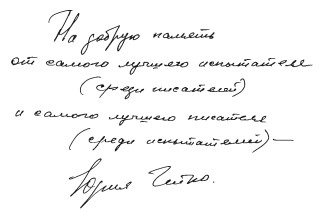 На добрую память
от самого лучшего испытателя
(среди писателей)
и самого лучшего писателя
(среди испытателей) —
Юрия Гейко.